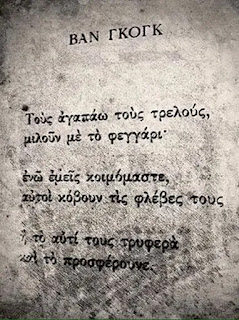 ΒΑΝ ΓΚΟΓΚ
Τοὺς ἀγαπάω τοὺς τρελούς,
μιλοῦν μὲ τὸ φεγγάρι·
ἐνῶ ἐμεῖς κοιμόμαστε,
αὐτοὶ κόβουν τὶς φλέβες τους
ἢ τὸ αὐτί τους τρυφερὰ
καὶ τὸ προσφέρουνε.